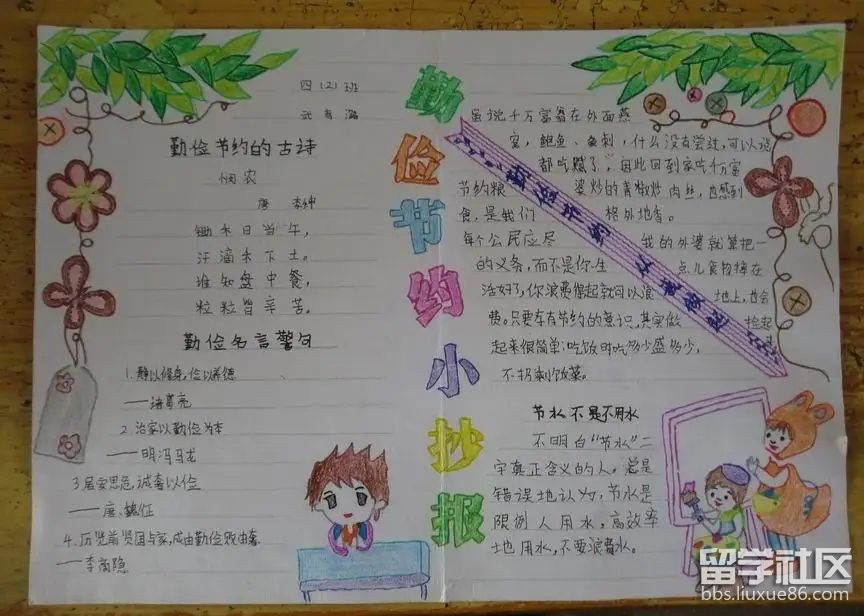 四(2)班
勤俭节约的古诗
悯农
唐 李绅
锄禾日当午,
汗滴禾下土。
谁知盘中餐,
粒粒皆辛苦。
勤俭名言警句
1.静以修身,俭以养德
——诸葛亮
2.治家以勤俭为本
——明冯马龙
3.居安思危,诫奢以俭
——唐、魏征
4.历览前贤国与家,成由勤俭败由奢
——李商隐
勤俭节约小抄报
虽说千万富翁在外面燕
窝,鲍鱼、鱼刺,什么没有尝过,可以说
都吃腻了,因此回到家吃千万富
婆炒的青椒炒肉丝,也感到
格外地香。
我的外婆就算把一
点儿食物掉在
地上,也会
捡起
节约粮
食,是我们
每个公民应尽
的义务,而不是你生
活好了,你浪费得起就可以浪
费。只要有节约的意识,其实做
起来很简单:吃饭时吃多少盛多少,
不扔剩饭菜。
节水不是不用水
不明白“节水”二
字真正含义的人。总是
错误地认为,节水是
限例人用水,高效率
地用水,不要浪费水。
留学社区
bbs.liuxue86.com